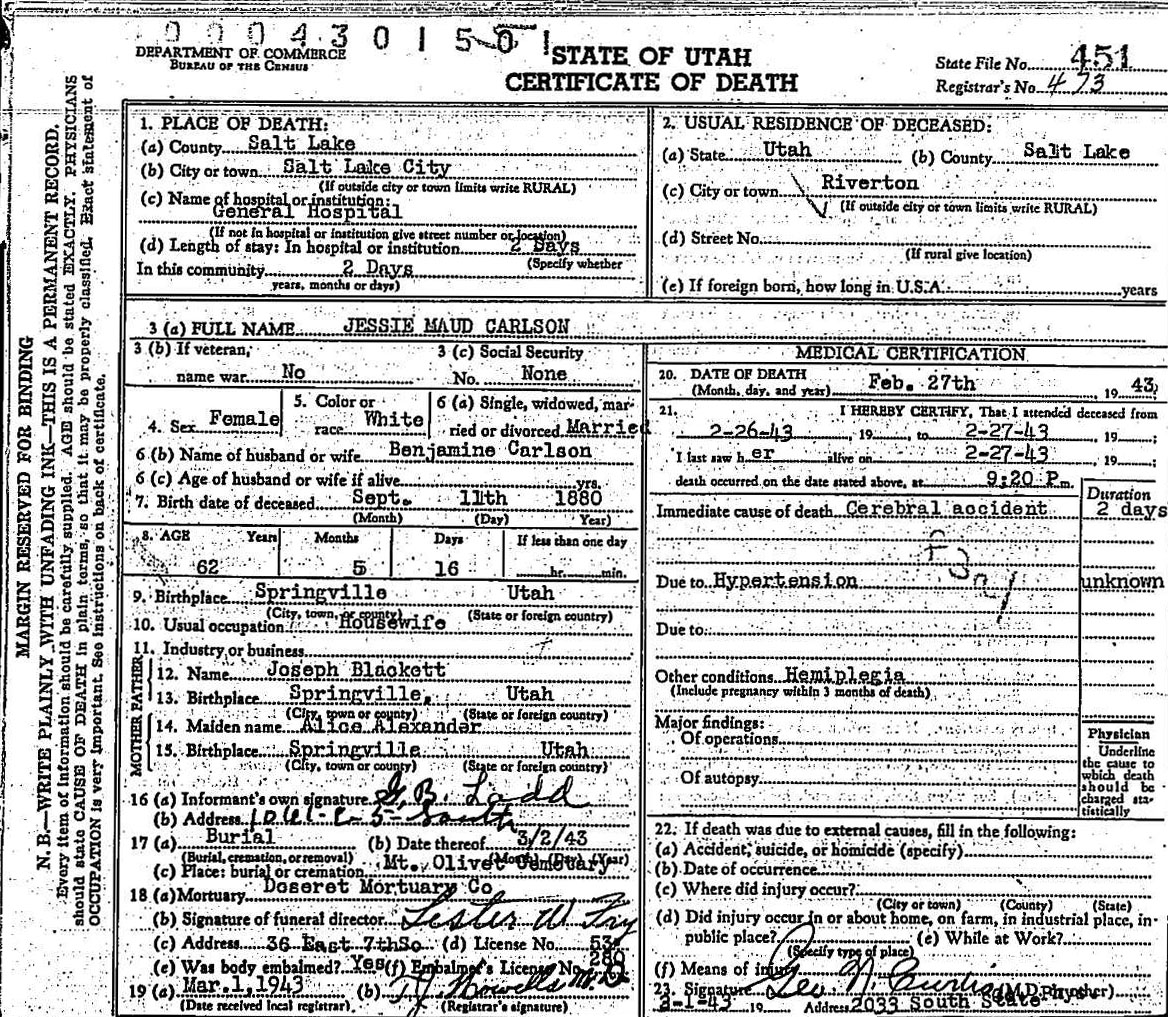 0 0 0 4 3 0 1 5 0 1
DEPARTMENT OF COMMERCE
BUREAU OF THE CENSUS
STATE OF UTAH
CERTIFICATE OF DEATH
State File No. 451
Registrar's No. 473
MARGIN RESERVED FOR BINDING
N. B.—WRITE PLAINLY WITH UNFADING INK—THIS IS A PERMANENT RECORD.
Every item of information should be carefully supplied. AGE should be stated EXACTLY. PHYSICIANS
should state CAUSE OF DEATH in plain terms, so that it may be properly classified. Exact statement of
OCCUPATION is very important. See instructions on back of certificate.
1. PLACE OF DEATH:
(a) County Salt Lake
(b) City or town Salt Lake City
(If outside city or town limits write RURAL)
(c) Name of hospital or institution:
General Hospital
(If not in hospital or institution give street number or location)
(d) Length of stay: In hospital or institution 2 Days
(Specify whether
In this community 2 Days
years, months or days)
2. USUAL RESIDENCE OF DECEASED:
(a) State Utah (b) County Salt Lake
(c) City or town Riverton
(If outside city or town limits write RURAL)
(d) Street No.
(If rural give location)
(e) If foreign born, how long in U.S.A. years
3 (a) FULL NAME JESSIE MAUD CARLSON
3 (b) If veteran, 3 (c) Social Security
name war No No. None
4. Sex Female 5. Color or race White 6 (a) Single, widowed, married or divorced Married
6 (b) Name of husband or wife Benjamine Carlson
6 (c) Age of husband or wife if alive yrs.
7. Birth date of deceased Sept. 11th 1880
(Month) (Day) Year)
8. AGE Years Months Days If less than one day
62 5 16 hr. min.
9. Birthplace Springville Utah
(City, town, or county) (State or foreign country)
10. Usual occupation Housewife
11. Industry or business
FATHER
12. Name Joseph Blackett
13. Birthplace Springville, Utah
(City, town or county) (State or foreign country)
MOTHER
14. Maiden name Alice Alexander
15. Birthplace Springville Utah
(City, town or county) (State or foreign country)
16 (a) Informant's own signature G. B. Ladd
(b) Address South
17 (a) Burial (b) Date thereof 3/2/43
(Burial, cremation, or removal) (Month) (Day) (Year)
(c) Place: burial or cremation Mt. Olivet Cemetary
18 (a) Mortuary Deseret Mortuary Co
(b) Signature of funeral director Lester W Fry
(c) Address 36 East 7thSo (d) License No. 53
(e) Was body embalmed? Yes (f) Embalmer's License No. 280
19 (a) Mar. 1, 1943 (b) Howells M.D
(Date received local registrar) (Registrar's signature)
MEDICAL CERTIFICATION
20. DATE OF DEATH
(Month, day, and year) Feb. 27th, 19 43
21. I HEREBY CERTIFY, That I attended deceased from
2-26-43, 19 to 2-27-43 19 ;
I last saw her alive on 2-27-43 19 ;
death occurred on the date stated above, at 9:20 P m.
Duration
Immediate cause of death Cerebral accident 2 days
Due to Hypertension unknown
Due to
Other conditions Hemiplegia
(Include pregnancy within 3 months of death)
Major findings:
Of operations
Of autopsy
Physician
Underline
the cause to
which death
should be
charged sta-
tistically
22. If death was due to external causes, fill in the following:
(a) Accident, suicide, or homicide (specify)
(b) Date of occurrence
(c) Where did injury occur?
(City or town) (County) (State)
(d) Did injury occur in or about home, on farm, in industrial place, in
public place? (e) While at Work?
(Specify type of place)
(f) Means of injury
23. Signature Geo N. Curtis (M.D. or other)
3-1-43 19 Address 2033 South State